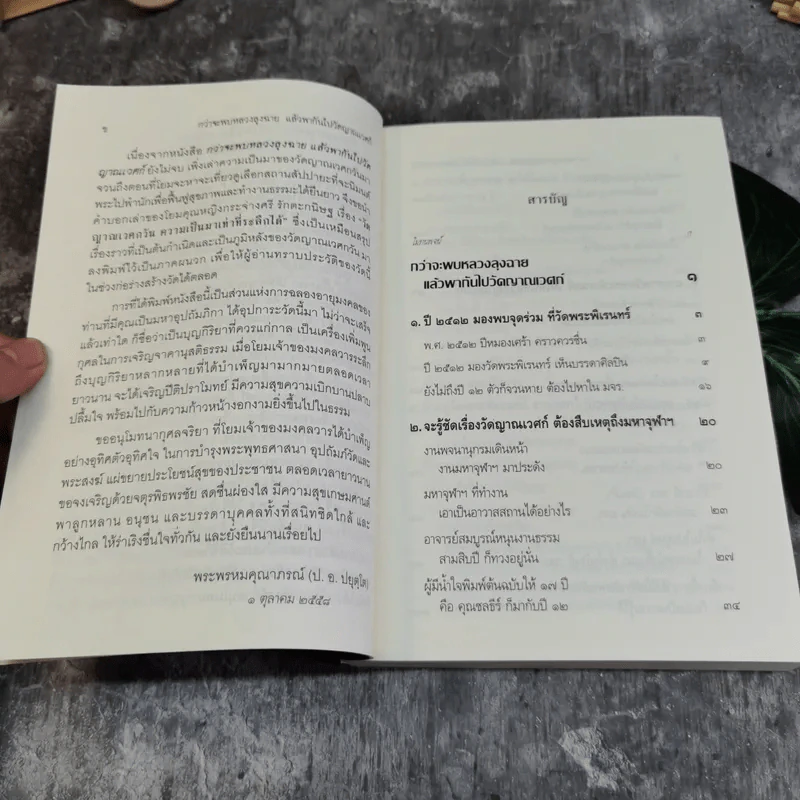 ข
กว่าจะพบหลวงลุงฉาย แล้วพากันไปวัดญาณเวศก์
เนื่องจากหนังสือ กว่าจะพบหลวงลุงฉาย แล้วพากันไปวัด
ญาณเวศก์ ยังไม่จบ เพิ่งเล่าความเป็นมาของวัดญาณเวศกวันมา
จวนถึงตอนที่โยมจะหาจะเที่ยวดูเลือกสถานสัปปายะที่จะนิมนต์
พระไปพำนักเพื่อฟื้นฟูสุขภาพและทำงานธรรมะได้ยืนยาว จึงขอนำ
คำบอกเล่าของโยมคุณหญิงกระจ่างศรี รักตะกนิษฐ เรื่อง "วัด
ญาณเวศกวัน ความเป็นมาเท่าที่ระลึกได้" ซึ่งเป็นเหมือนสรุป
เรื่องราวที่เป็นต้นกำเนิดและเป็นภูมิหลังของวัดญาณเวศกวัน มา
ลงพิมพ์ไว้เป็นภาคผนวก เพื่อให้ผู้อ่านทราบประวัติของวัดนี้
ในช่วงก่อร่างสร้างวัดได้ตลอด
การที่ได้พิมพ์หนังสือนี้เป็นส่วนแห่งการฉลองอายุมงคลของ
ท่านที่มีคุณเป็นมหาอุปถัมภิกา ได้อุปการะวัดนี้มา ไม่ว่าจะเสร็จ
แล้วเท่าใด ก็ชื่อว่าเป็นบุญกิริยาที่ควรแก่กาล เป็นเครื่องเพิ่มพูน
กุศลในการเจริญจาคานุสติธรรม เมื่อโยมเจ้าของมงคลวาระลึก
ถึงบุญกิริยาหลากหลายที่ได้บำเพ็ญมามากมายตลอดเวลา
ยาวนาน จะได้เจริญปีติปราโมทย์ มีความสุขความเบิกบานปลาบ
ปลื้มใจ พร้อมไปกับความก้าวหน้างอกงามยิ่งขึ้นไปในธรรม
ขออนุโมทนากุศลจริยา ที่โยมเจ้าของมงคลวารได้บำเพ็ญ
อย่างอุทิศตัวอุทิศใจ ในการบำรุงพระพุทธศาสนา อุปถัมภ์วัดและ
พระสงฆ์ แผ่ขยายประโยชน์สุขของประชาชน ตลอดเวลายาวนาน
ขอจงเจริญด้วยจตุรพิธพรชัย สดชื่นผ่องใส มีความสุขเกษมศานต์
พาลูกหลาน อนุชน และบรรดาบุคคลทั้งที่สนิทชิดใกล้ และ
กว้างไกล ให้ร่าเริงชื่นใจทั่วกัน และยั่งยืนนานเรื่อยไป
พระพรหมคุณาภรณ์ (ป. อ. ปยุตฺโต)
๑ ตุลาคม ๒๕๕๘
สารบัญ
กว่าจะพบหลวงลุงฉาย
แล้วพากันไปวัดญาณเวศก์ ๑
๑. ปี ๒๕๑๒ มองพบจุดร่วม ที่วัดพระพิเรนทร์ ๓
พ.ศ. ๒๕๑๒ ปีหมองเศร้า คราวควรชื่น ๓
ปี ๒๕๑๒ มองวัดพระพิเรนทร์ เห็นบรรดาศิลปิน ๕
ยังไม่ถึงปี ๑๒ ตัวก็จวนหาย ต้องไปหาใน มจร. ๑๖
๒. จะรู้ชัดเรื่องวัดญาณเวศก์ ต้องสืบเหตุถึงมหาจุฬาฯ ๒๐
งานพจนานุกรมเดินหน้า
งานมหาจุฬาฯ มาประดัง ๒๐
มหาจุฬาฯ ที่ทำงาน
เอาเป็นอาวาสสถานได้อย่างไร ๒๓
อาจารย์สมบูรณ์หนุนงานธรรม
สามสิบปี ก็ทวงอยู่นั่น ๒๗
ผู้มีน้ำใจพิมพ์ต้นฉบับให้ ๑๗ ปี
คือ คุณชลธีร์ ก็มากับปี ๑๒ ๓๔